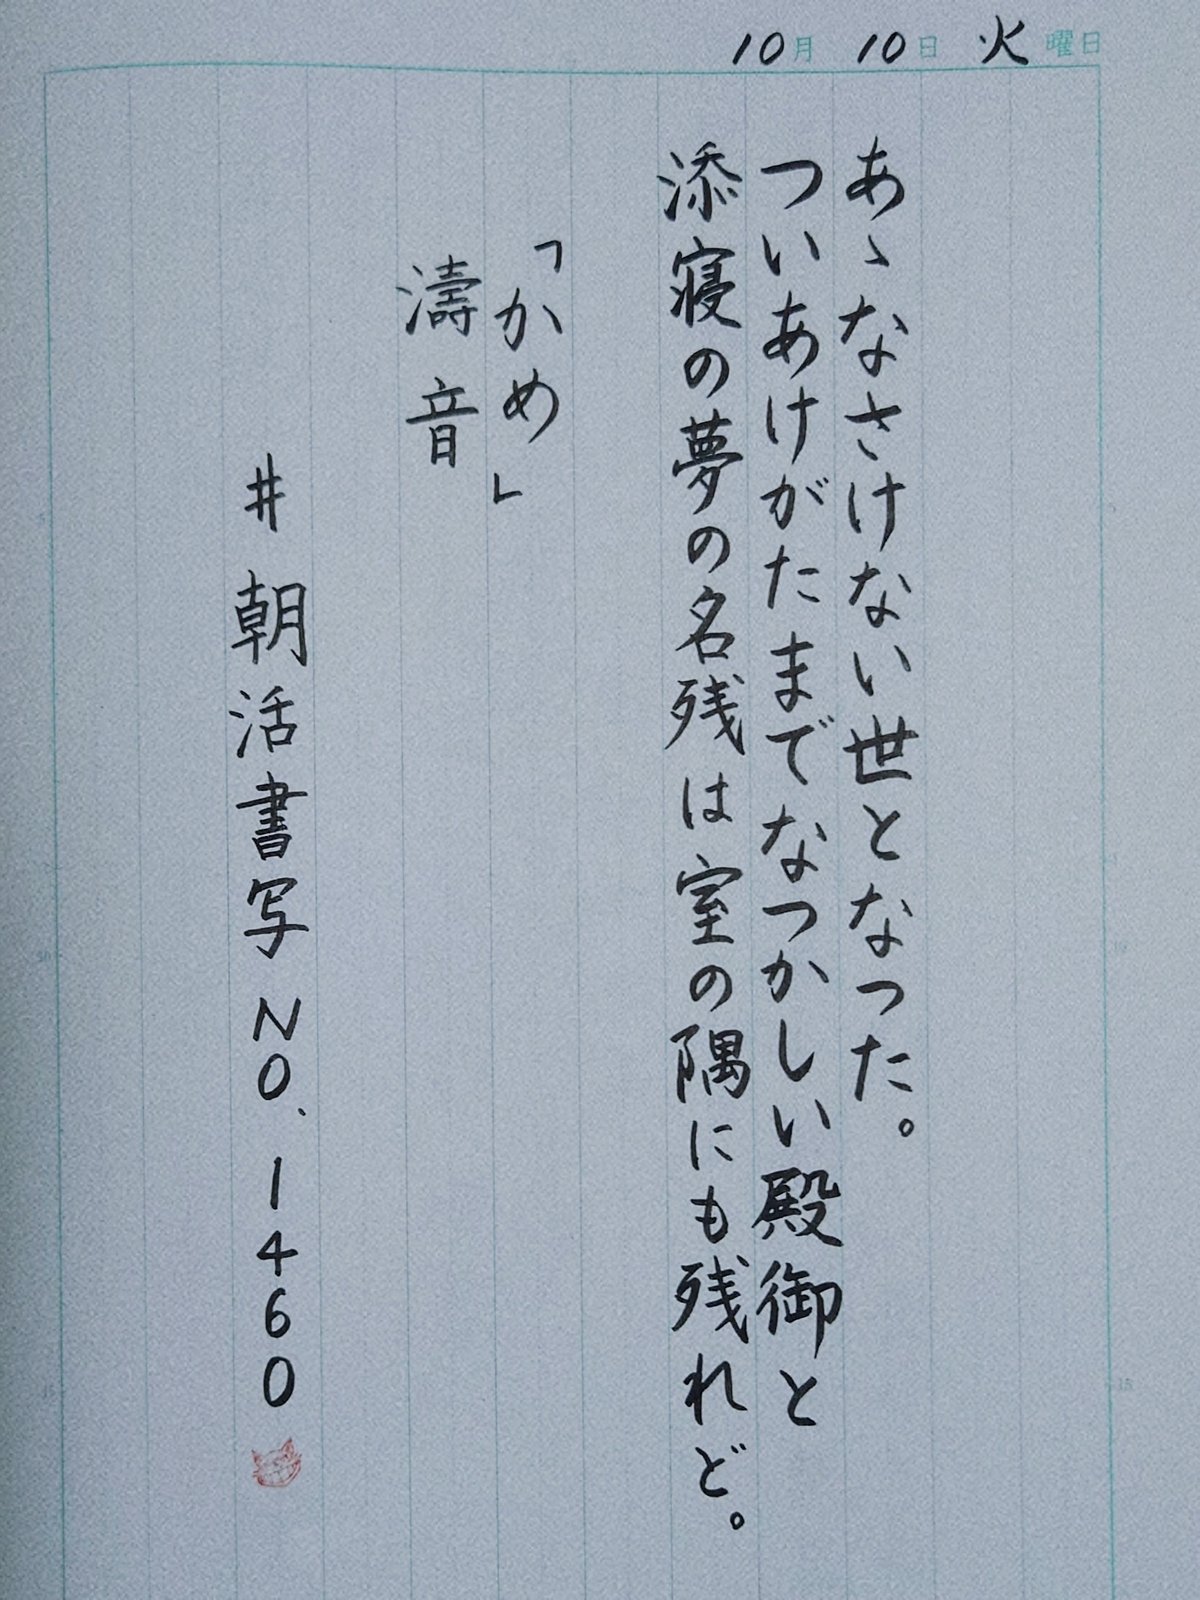 10月 10日 火曜日
あゝなさけない世となった。
ついあけがたまでなつかしい殿御と
添寝の夢の名残は室の隅にも残れど。
「かめ」
濤音
# 朝活書写 NO. 1460